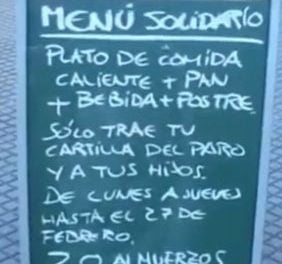 MENÚ SOLIDARIO
PLATO DE COMIDA
CALIENTE + PAN
+ BEBIDA + POSTRE
SÓLO TRAE TU
CARTILLA DEL PARO
Y A TUS HIJOS.
DE LUNES A JUEVES
HASTA EL 27 DE
FEBRERO.
20 ALMUERZOS